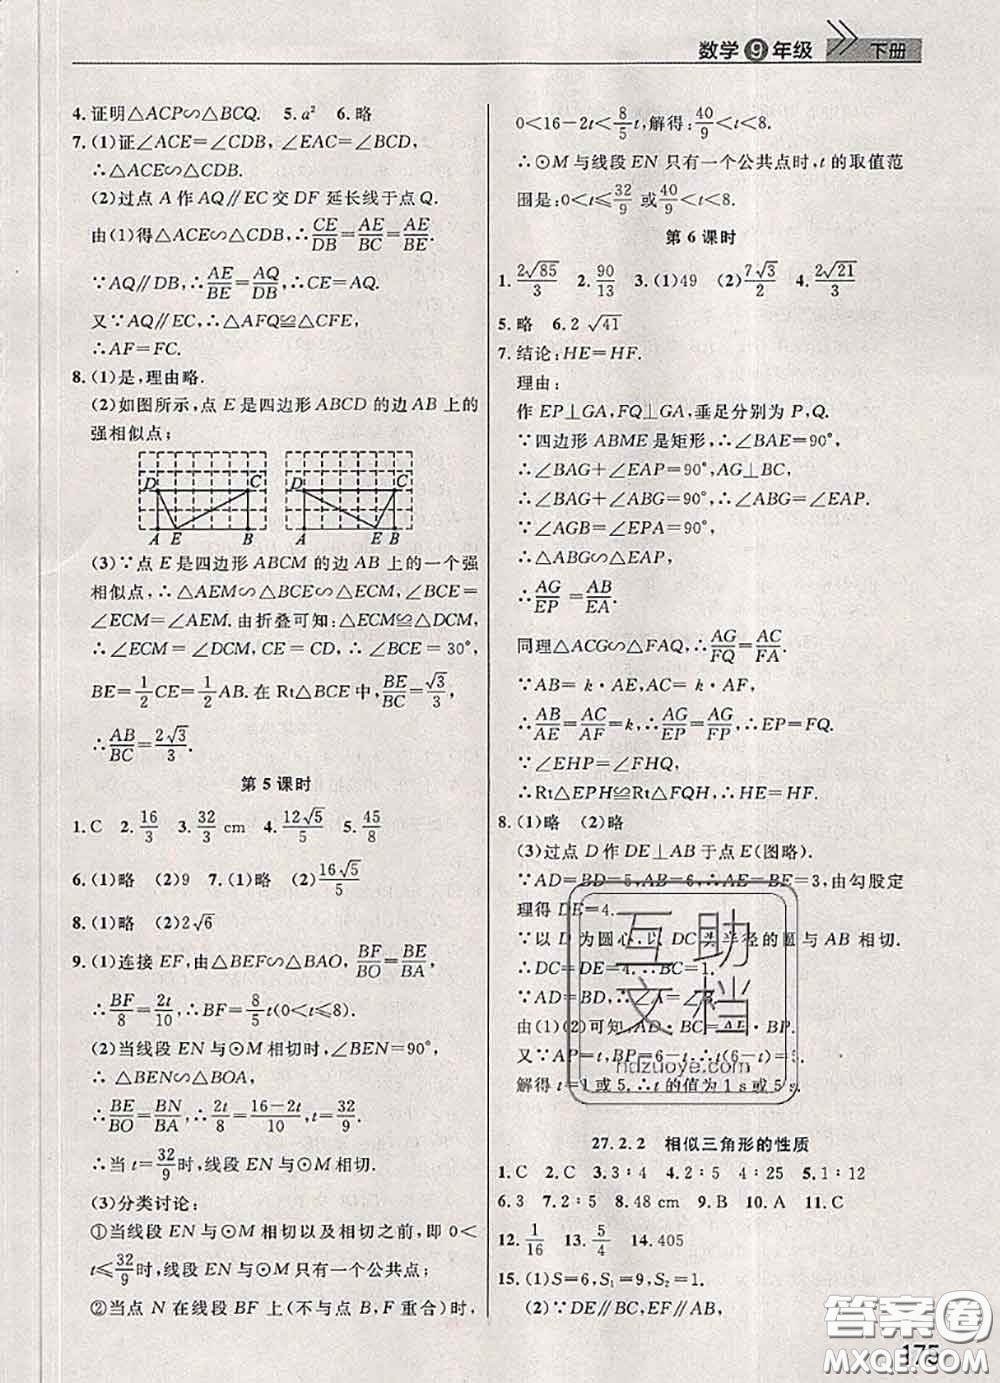 数学9年级 下册
4.证明△ACP∽△BCQ. 5.a² 6.略
7.(1)证∠ACE=∠CDB,∠EAC=∠BCD,
∴△ACE∽△CDB.
(2)过点A作AQ∥EC交DF延长线于点Q.
由(1)得△ACE∽△CDB,∴CE/DB=AE/BC=AE/BE.
∵AQ∥DB,∴AE/BE=AQ/DB,∴CE=AQ.
又∵AQ∥EC,∴△AFQ≌△CFE,
∴AF=FC.
8.(1)是,理由略.
(2)如图所示,点E是四边形ABCD的边AB上的
强相似点;
D C D C
A E B A E B
(3)∵点E是四边形ABCM的边AB上的一个强
相似点,∴△AEM∽△BCE∽△ECM,∴∠BCE=
∠ECM=∠AEM.由折叠可知:△ECM≌△DCM,
∴∠ECM=∠DCM,CE=CD,∴∠BCE=30°,
BE=1/2CE=1/2AB.在Rt△BCE中,BE/BC=√3/3,
∴AB/BC=2√3/3.
第5课时
1.C 2.16/3 3.32/3 cm 4.12√5/5 5.45/8
6.(1)略 (2)9 7.(1)略 (2)16√5/5
8.(1)略 (2)2√6
9.(1)连接EF,由△BEF∽△BAO,BF/BO=BE/BA,
∴BF/8=2t/10,∴BF=8/5t(0<t≤8).
(2)当线段EN与⊙M相切时,∠BEN=90°,
∴△BEN∽△BOA,
∴BE/BO=BN/BA,∴2t/8=(16-2t)/10,t=32/9,
∴当t=32/9时,线段EN与⊙M相切.
(3)分类讨论:
①当线段EN与⊙M相切以及相切之前,即0<
t≤32/9时,线段EN与⊙M只有一个公共点;
②当点N在线段BF上(不与点B,F重合)时,
0<16-2t<8/5t,解得:40/9<t<8.
∴⊙M与线段EN只有一个公共点时,t的取值范
围是:0<t≤32/9或40/9<t<8.
第6课时
1.2√85/3 2.90/13 3.(1)49 (2)7√3/2 4.2√21/3
5.略 6.2√41
7.结论:HE=HF.
理由:
作EP⊥GA,FQ⊥GA,垂足分别为P,Q.
∵四边形ABME是矩形,∴∠BAE=90°,
∴∠BAG+∠EAP=90°,AG⊥BC,
∴∠BAG+∠ABG=90°,∴∠ABG=∠EAP.
∵∠AGB=∠EPA=90°,
∴△ABG∽△EAP,
∴AG/EP=AB/EA.
同理△ACG∽△FAQ,∴AG/FQ=AC/FA.
∵AB=k·AE,AC=k·AF,
∴AB/AE=AC/AF=k,∴AG/EP=AG/FP,∴EP=FQ.
∵∠EHP=∠FHQ,
∴Rt△EPH≌Rt△FQH,∴HE=HF.
8.(1)略 (2)略
(3)过点D作DE⊥AB于点E(图略).
∵AD=BD=5,AB=6,∴AE=BE=3,由勾股定
理得DE=4.
∵以D为圆心,以DC为半径的圆与AB相切.
∴DC=DE=4.∴BC=1.
∵AD=BD,∴∠A=∠B.
由(1)(2)可知,AD·BC=AP·BP.
又∵AP=t,BP=6-t,∴t(6-t)=5.
解得t=1或5,∴t的值为1 s或5 s.
27.2.2 相似三角形的性质
1.C 2.C 3.3:4 4.2:5 4:25 5.1:12
6.3 7.2:5 8.48 cm 9.B 10.A 11.C
12.1/16 13.5/4 14.405
15.(1)S=6,S₁=9,S₂=1.
(2)∵DE∥BC,EF∥AB,
互助
文档
hdzuoye.com
答案圈
MXQE.COM
175